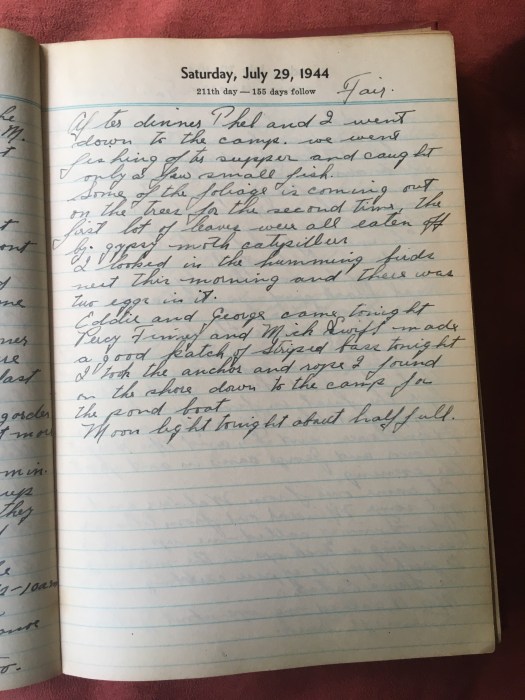 Saturday, July 29, 1944
211th day — 155 days follow
Fair.
After dinner Phil and I went
down to the camp. we went
fishing after supper and caught
only a few small fish.
Some of the foliage is coming out
on the trees for the second time, the
first lot of leaves were all eaten off
by gypsy moth catepillers
I looked in the humming birds
nest this morning and there was
two eggs in it.
Eddie and George came tonight
Percy Finney and Mick Swift made
a good catch of striped bass tonight
I took the anchor and rope I found
on the shore down to the camp for
the pond boat
Moon light tonight about half full.